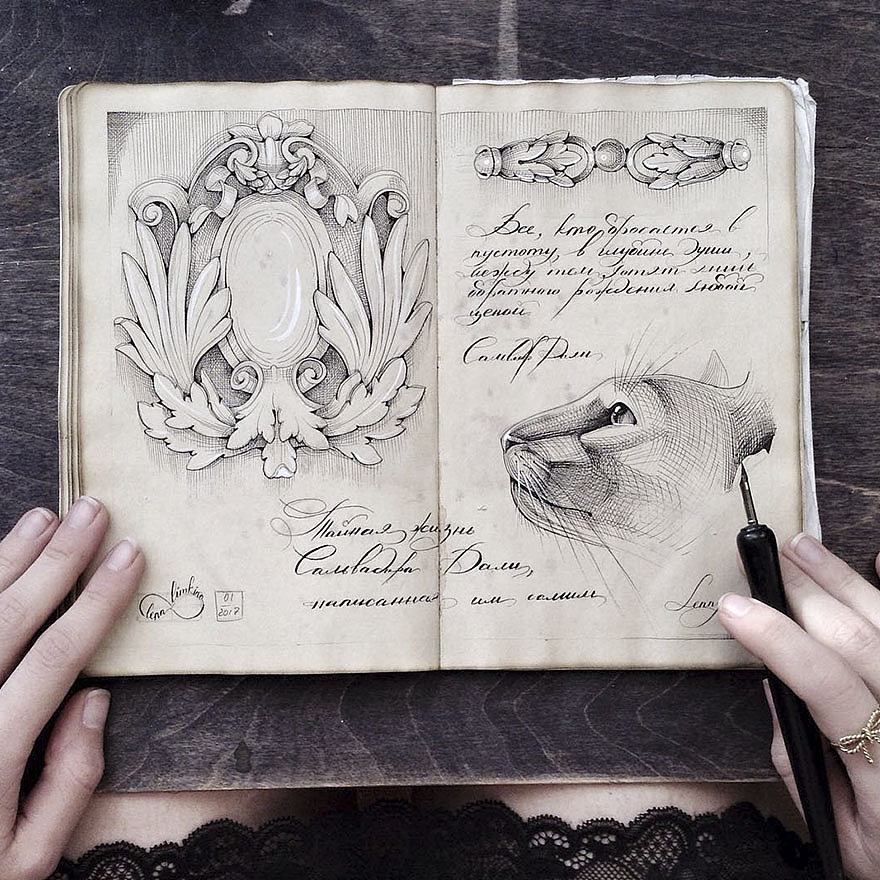 Все, кто бросается в
пустоту, в глубине души,
между тем хотят лишь
обратного рождения любой
ценой
Дали
Тайная жизнь
Сальвадора Дали,
написанная им самим
lena limkina
01
2017